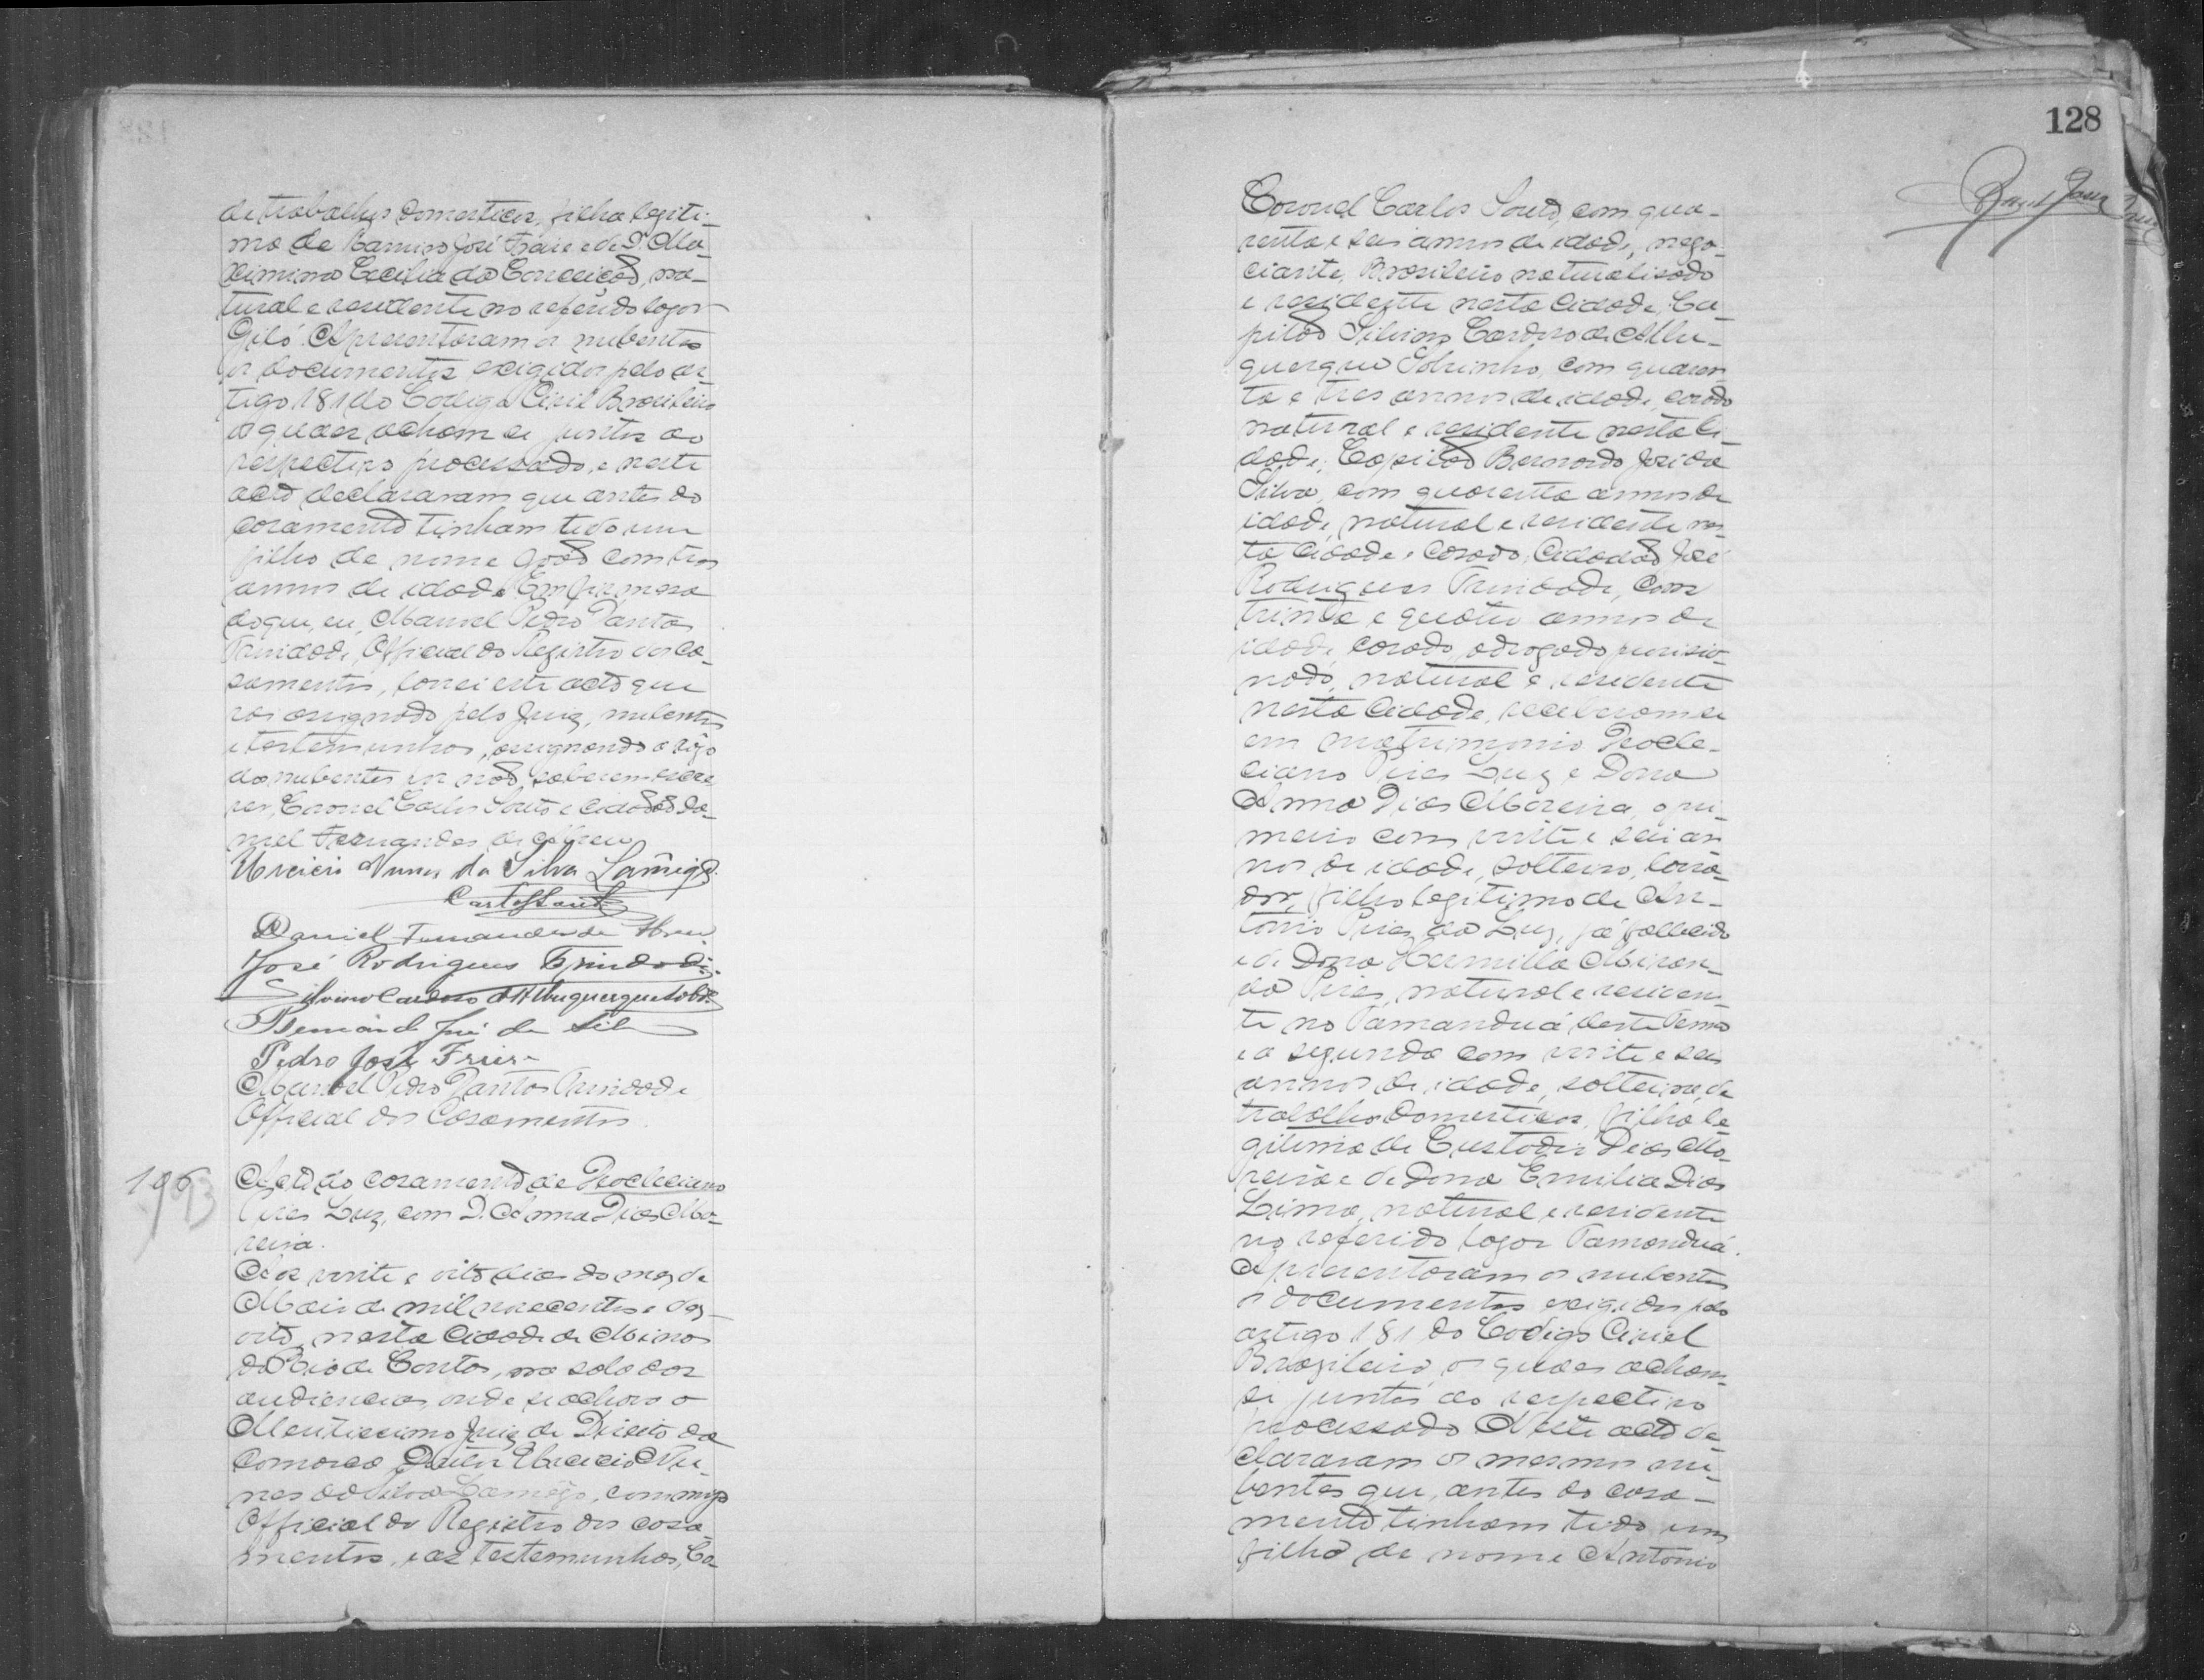 de trabalhos domesticos, filha legiti-
ma de Ramiro José Freire e de D. Ma-
ximina Cecilia da Conceição, na-
tural e residente no referido logar
Giló. Apresentaram os nubentes
os documentos exigidos pelo ar-
tigo 181 do Codigo Civil Brasileiro
os quaes acham se juntos ao
respectivo processado, e neste
acto declararam que antes do
casamento tinham tido um
filho de nome João com tres
annos de idade. Em firmesa
do que, eu, Manoel Pedro Dantas
Trindade, Official do Registro dos Ca-
samentos, lavrei este acto que
vai assignado pelo Juiz, nubentes
e testemunhas, assignando a rogo
dos nubentes por não saberem escre-
ver, Coronel Carlos Souto e Cidadão Da-
niel Fernandes de Abreu
Uricicio Nunes da Silva Lamêgo.
Carlos Souto
Daniel Fernandes de Abreu
José Rodrigues Trindade.
Silvino Cardoso d'Albuquerque Sobr.
Bernardo José da Silva
Pedro José Freire
Manoel Pedro Dantas Trindade
Official dos Casamentos.
196
93
Acto do casamento de Deocleciano
Pires Luz, com D. Anna Dias Mo-
reira.
Aos vinte e oito dias do mez de
Maio de mil novecentos e dez-
oito, nesta Cidade de Minas
do Rio de Contas, na sala das
audiencias onde se achava o
Meritissimo Juiz de Direito da
Comarca Doutor Uricicio Nu-
nes da Silva Lamêgo, commigo
Official do Registro dos casa-
mentos, e as testemunhas, Co-
128
Coronel Carlos Souto, com qua-
renta e seis annos de idade, nego-
ciante, Brasileiro naturalisado
e residente nesta Cidade, Ca-
pitão Silvino Cardoso de Albu-
querque Sobrinho, com quaren-
ta e tres annos de idade, casado
natural e residente nesta Ci-
dade, Capitão Bernardo José da
Silva, com quarenta annos de
idade, natural e residente nes-
ta Cidade e casado, Cidadão José
Rodrigues Trindade, com
trinta e quatro annos de
idade, casado, advogado provisio-
nado, natural e residente
nesta Cidade, receberam se
em matrimonio Deocle-
ciano Pires Luz e Dona
Anna Dias Moreira, o pri-
meiro com vinte e seis an-
nos de idade, solteiro, lavra-
dor, filho legitimo de An-
tonio Pires da Luz, já fallecido
e de Dona Hermilla Miran-
da Pires, natural e residen-
te no Tamanduá deste Termo
e a segunda com vinte e seis
annos de idade, solteira, de
trabalhos domesticos, filha le-
gitima de Custodio Dias Mo-
reira e de Dona Emilia Dias
Lima, natural e residente
no referido logar Tamanduá.
Apresentaram os nubentes
os documentos exigidos pelo
artigo 181 do Codigo Civil
Brazileiro, os quaes acham-
se juntos ao respectivo
processado. Neste acto de-
clararam os mesmos nu-
bentes que, antes do casa-
mento tinham tido um
filho de nome Antonio